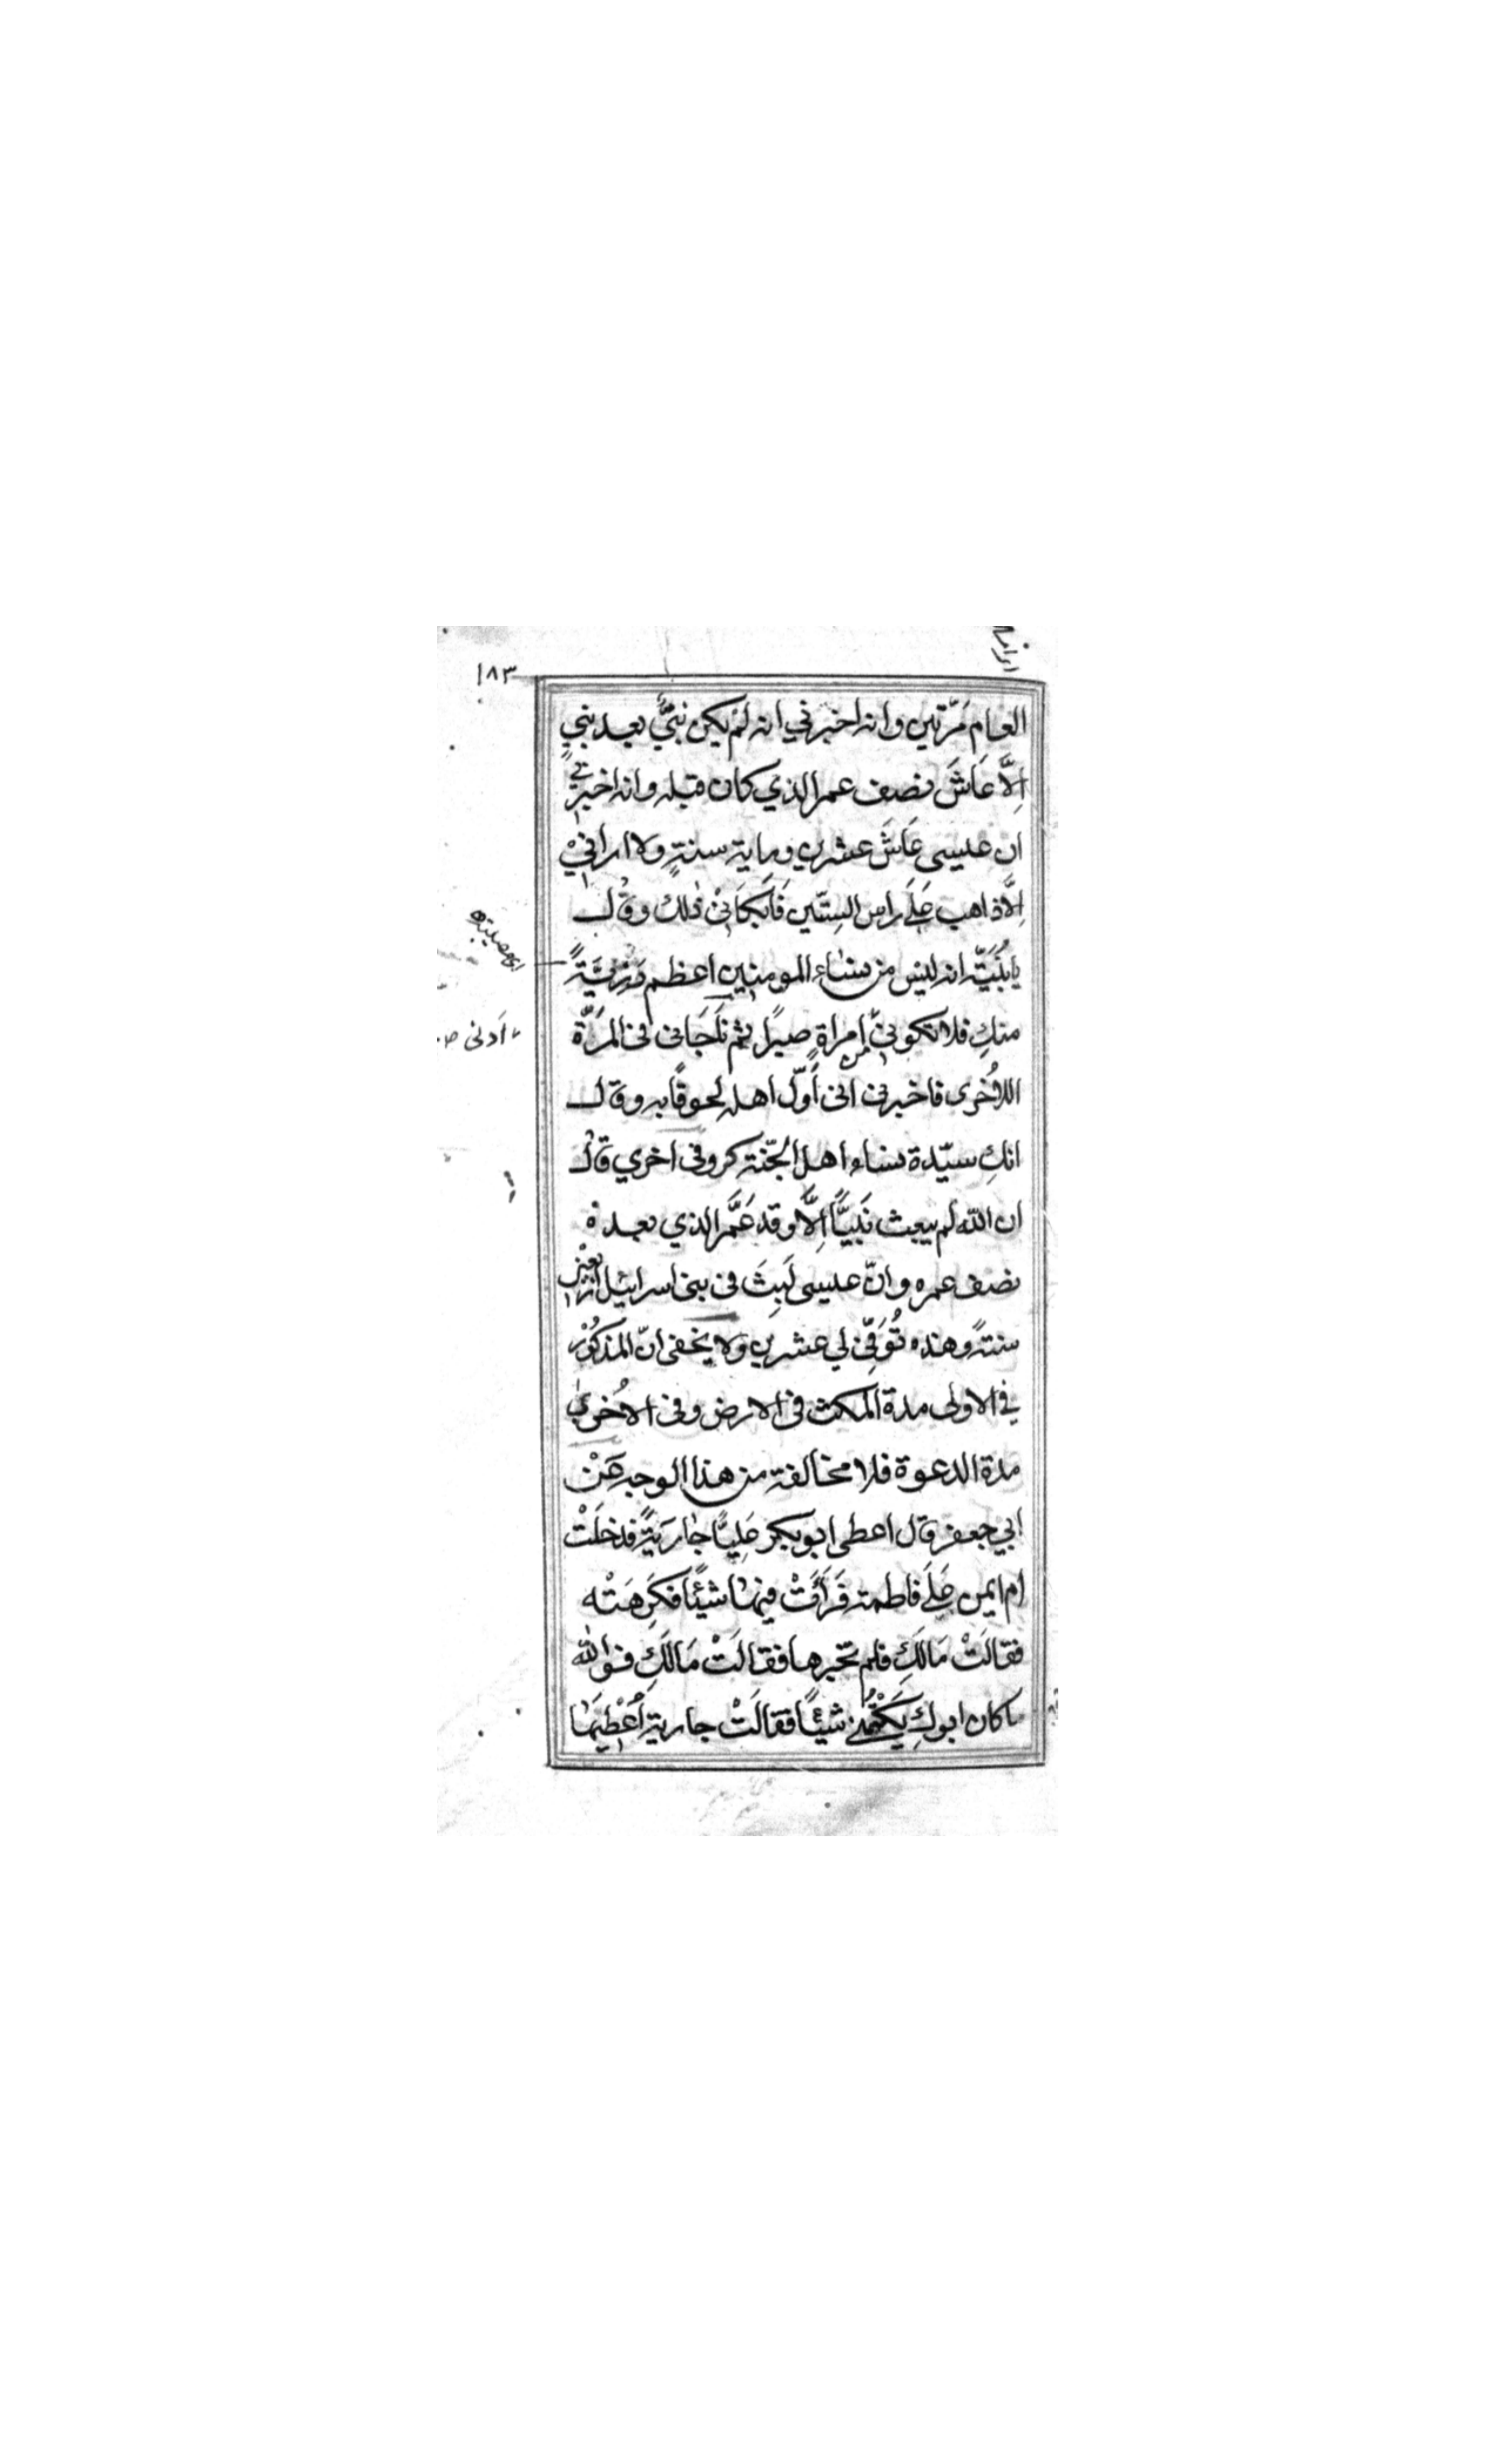 ١٨٣
العام مَرّتين وانه اخبرني انه لم يكن نبيٌّ بعد نبي
اِلَّا عَاشَ نصف عمر الذي كان قبله وانه اخبرني
ان عيسى عَاشَ عشرين وماية سنةٍ ولا اراني
اِلَّا ذاهب عَلَى راس السِتّين فَاَبكَانِي ذٰلك وقال
يا بُنَيّة انه ليس من نساء المومنين اعظم رَزِيَّةً
اى مصيبة
منكِ فلا تكوني من امراة صبرًا ثم نَاجَانى فى المَرّة
ادنى ص
الاُخرى فاخبرنى انى اَوّل اهله لحوقًا به وقال
انكِ سيّدة نساء اهل الجّنة كر وفى اخري قال
ان الله لم يبعث نَبيًّا اِلَّا وقد عَمَّر الذي بعده
نصف عمره وانّ عيسى لَبِثَ فى بنى اسرائيل اربعين
سنةً وهٰذه تُوَفّى لي عشرين ولا يخفى انّ المذكُوْر
في الاولى مدة المكث فى الارض وفى الاُخرىٰ
مدة الدعوة فلا مخالفة من هذا الوجه عَنْ
ابي جعفر قال اعطى ابو بكر عَلِيًّا جَارِيَةً فدخلَتْ
ام ايمن عَلَى فاطمة فَرَاَتْ فيهَا شَيْئًا فكَرِهَتْه
فقالَتْ مَالَكِ فلم تخبرها فقالَتْ مَالَكِ فوالله
ما كان ابوكِ يَكْتُمُني شيئًا فقالَتْ جارية اُعْطِيَهَا